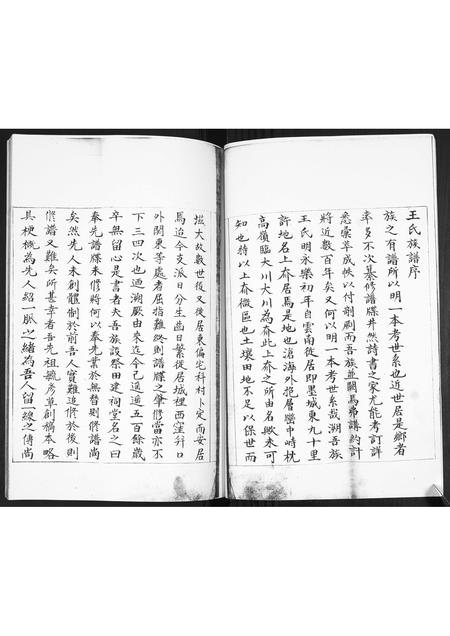 王氏族譜序
族之有譜所以明一本考世系也近世居是鄉者
率多不次纂修譜牒井然詩書之家尤能考訂詳
悉彙萃成帙以付剞劂而吾族並闕焉弗講約計
將近數百年矣又何以明一本考世系哉溯吾族
王氏明永樂初年自雲南徙居即墨城東九十里
許地名上夼居焉是地也滄海外抱層巒中峙枕
高嶺臨大川大川為夼此上夼之所由名歟未可
知也特以上夼微區也土壤田地不足以保世而
滋大故數世後又徙居東偏宅科村卜定而安居
馬迨今支派日分生齒日繁徙居城裡西窪幷口
外関東等處者屈指難終則譜牒之肇修當亦不
下三四次也迺溯厥由來迄今已逾五百餘歲
卒無留心是書者夫吾族設祭田建祠堂名之曰
奉先譜牒未修將何以奉先業於無替則修譜尚
矣然先人未創體制於前吾人實難追修於後則
修譜又難矣所甚幸者吾先祖毓彥草創稿本略
具梗概為先人紹一脈之緒為吾人留一線之傳尚